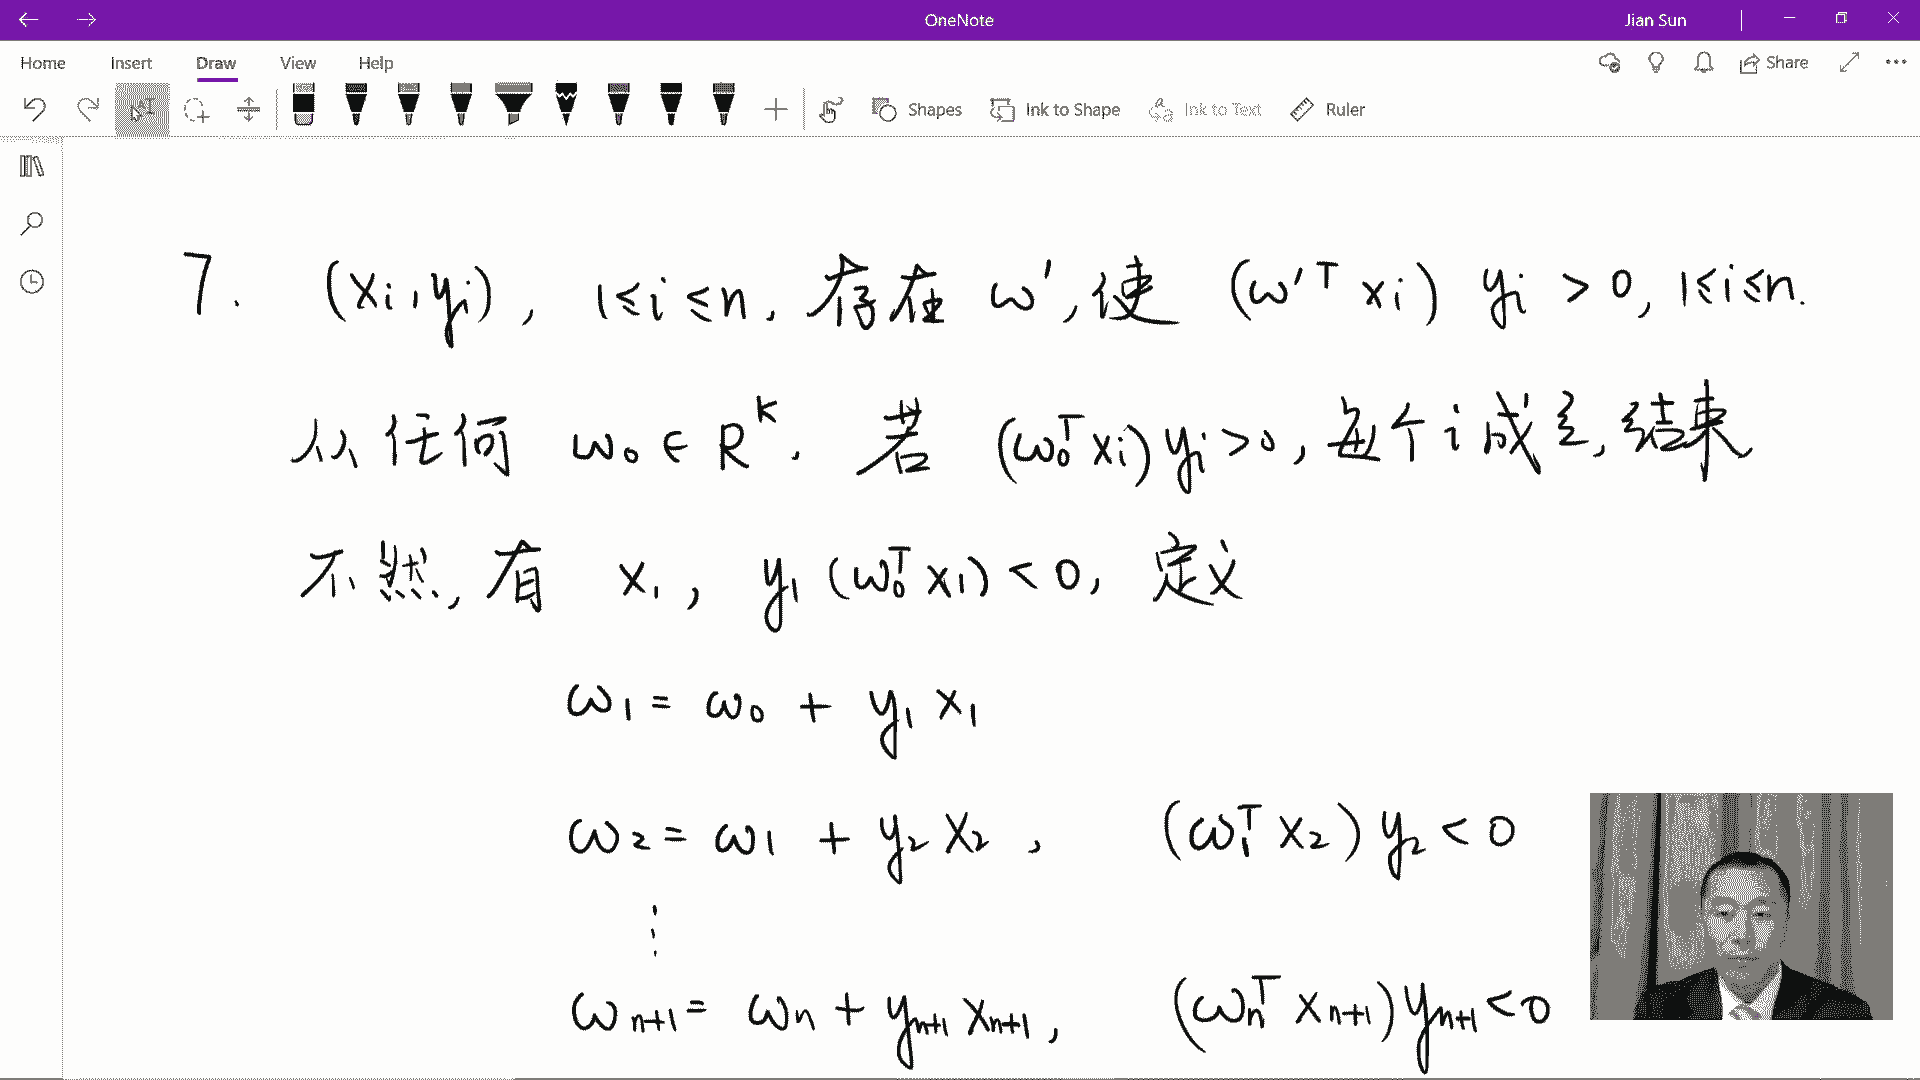 OneNote
Jian Sun
Home Insert Draw View Help
Share
Shapes Ink to Shape Ink to Text Ruler
7. (xi, yi), 1≤i≤n, 存在 ω', 使 (ω'ᵀ xi) yi > 0, 1≤i≤n.
从任何 ω₀ ∈ Rᴷ. 若 (ω₀ᵀ xi) yi > 0, 每个 i 成立, 结束
不然, 有 x₁, y₁ (ω₀ᵀ x₁) < 0, 定义
ω₁ = ω₀ + y₁ x₁
ω₂ = ω₁ + y₂ x₂, (ω₁ᵀ x₂) y₂ < 0
⋮
ωn+1 = ωn + yn+1 xn+1, (ωnᵀ xn+1) yn+1 < 0